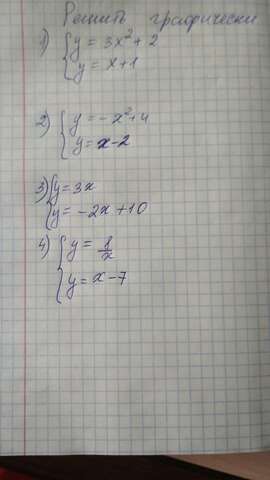 Решить графически
1) { y = 3x² + 2
y = x+1
2) { y = -x²+4
y = x-2
3) { y = 3x
y = -2x+10
4) { y = 1/x
y = x-7